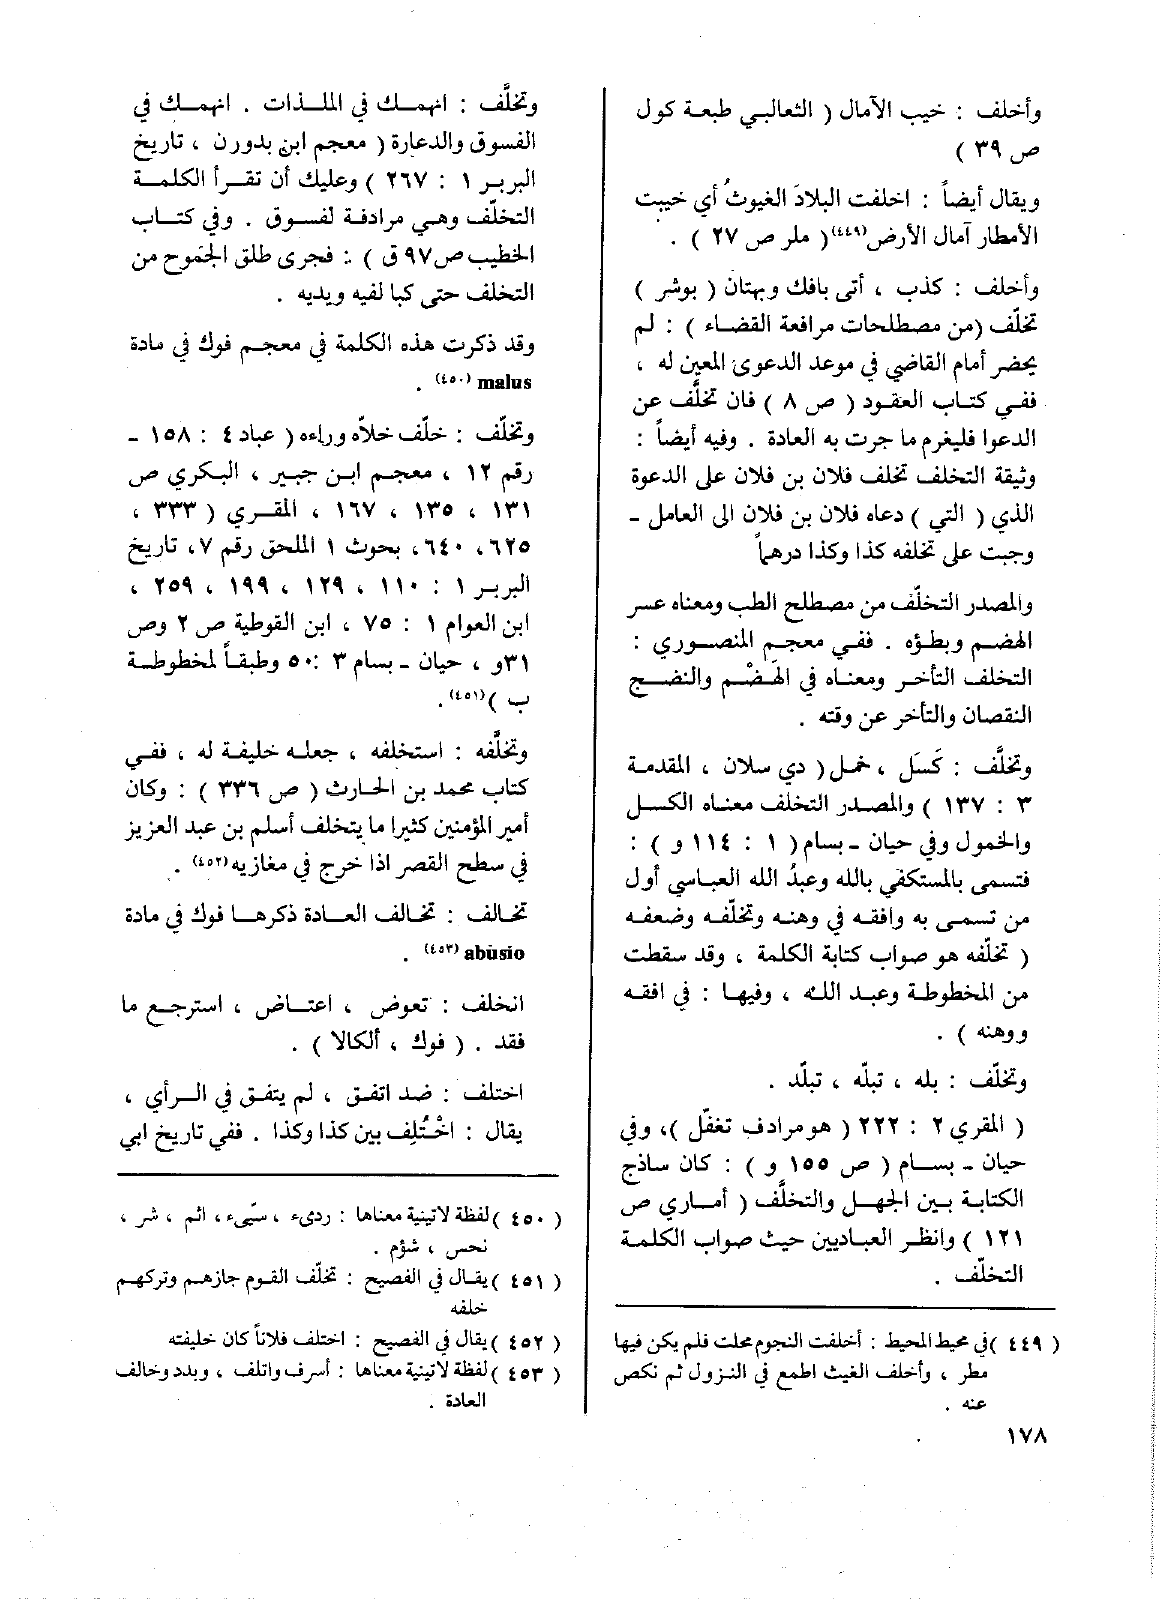 وأخلف : خيب الآمال ( الثعالبي طبعة كول
ص ٣٩ )
ويقال أيضاً : اخلفت البلادَ الغيوثُ أي خيبت
الأمطار آمال الأرض(٤٤٩)( ملر ص ٢٧ ) .
وأخلف : كذب ، أتى بافك وبهتان ( بوشر )
تخلّف (من مصطلحات مرافعة القضاء ) : لم
يحضر أمام القاضي في موعد الدعوى المعين له ،
ففي كتاب العقود ( ص ٨ ) فان تخلَّف عن
الدعوا فليغرم ما جرت به العادة . وفيه أيضاً :
وثيقة التخلف تخلف فلان بن فلان على الدعوة
الذي ( التي ) دعاه فلان بن فلان الى العامل -
وجبت على تخلفه كذا وكذا درهماً
والمصدر التخلّف من مصطلح الطب ومعناه عسر
الهضم وبطؤه . ففي معجم المنصوري :
التخلف التأخر ومعناه في الهَضْم والنضج
النقصان والتأخر عن وقته .
وتخلَّف : كَسَل ، خمل ( دي سلان ، المقدمة
٣ : ١٣٧ ) والمصدر التخلف معناه الكسل
والخمول وفي حيان - بسام ( ١ : ١١٤ و ) :
فتسمى بالمستكفي بالله وعبدُ الله العباسي أول
من تسمى به وافقه في وهنه وتخلّفه وضعفه
( تخلّفه هو صواب كتابة الكلمة ، وقد سقطت
من المخطوطة وعبد الله ، وفيها : في افقه
ووهنه ) .
وتخلّف : بله ، تبلّه ، تبلّد .
( المقري ٢ : ٢٢٢ ( هو مرادف تغفّل )، وفي
حيان - بسام ( ص ١٥٥ و ) : كان ساذج
الكتابة بين الجهل والتخلَّف ( أماري ص
١٢١ ) وانظر العباديين حيث صواب الكلمة
التخلّف .
( ٤٤٩ )في محيط المحيط : أخلفت النجوم محلت فلم يكن فيها
مطر ، وأخلف الغيث اطمع في النزول ثم نكص
عنه .
١٧٨
وتخلَّف : انهمك في الملذات . انهمك في
الفسوق والدعارة ( معجم ابن بدورن ، تاريخ
البربر ١ : ٢٦٧ ) وعليك أن تقرأ الكلمة
التخلّف وهي مرادفة لفسوق . وفي كتاب
الخطيب ص٩٧ ق ) : فجرى طلق الجَموح من
التخلف حتى كبا لفيه ويديه .
وقد ذكرت هذه الكلمة في معجم فوك في مادة
malus (٤٥٠) .
وتخلّف : خلّف خلاّه وراءه ( عباد ٤ : ١٥٨ -
رقم ١٢ ، معجم ابن جبير ، البكري ص
١٣١ ، ١٣٥ ، ١٦٧ ، المقري ( ٣٣٣ ،
٦٢٥، ٦٤٠، بحوث ١ الملحق رقم ٧، تاريخ
البربر ١ : ١١٠ ، ١٢٩ ، ١٩٩ ، ٢٥٩ ،
ابن العوام ١ : ٧٥ ، ابن القوطية ص ٢ وص
٣١و ، حيان - بسام ٣ :٥٠ وطبقاً لمخطوطة
ب )(٤٥١).
وتخلَّفه : استخلفه ، جعله خليفة له ، ففي
كتاب محمد بن الحارث ( ص ٣٣٦ ) : وكان
أمير المؤمنين كثيرا ما يتخلف أسلم بن عبد العزيز
في سطح القصر اذا خرج في مغازيه(٤٥٢) .
تخالف : تخالف العادة ذكرها فوك في مادة
abusio (٤٥٣) .
انخلف : تعوض ، اعتاض ، استرجع ما
فقد . ( فوك ، ألكالا ) .
اختلف : ضد اتفق ، لم يتفق في الرأي ،
يقال : اخْتُلِف بين كذا وكذا . ففي تاريخ ابي
( ٤٥٠ )لفظة لاتينية معناها : رديء ، سيّىء ، اثم ، شر ،
نحس ، شؤم .
( ٤٥١ )يقال في الفصيح : تخلّف القوم جازهم وتركهم
خلفه
( ٤٥٢ )يقال في الفصيح : اختلف فلاناً كان خليفته
( ٤٥٣ )لفظة لاتينية معناها : أسرف واتلف ، وبدد وخالف
العادة .